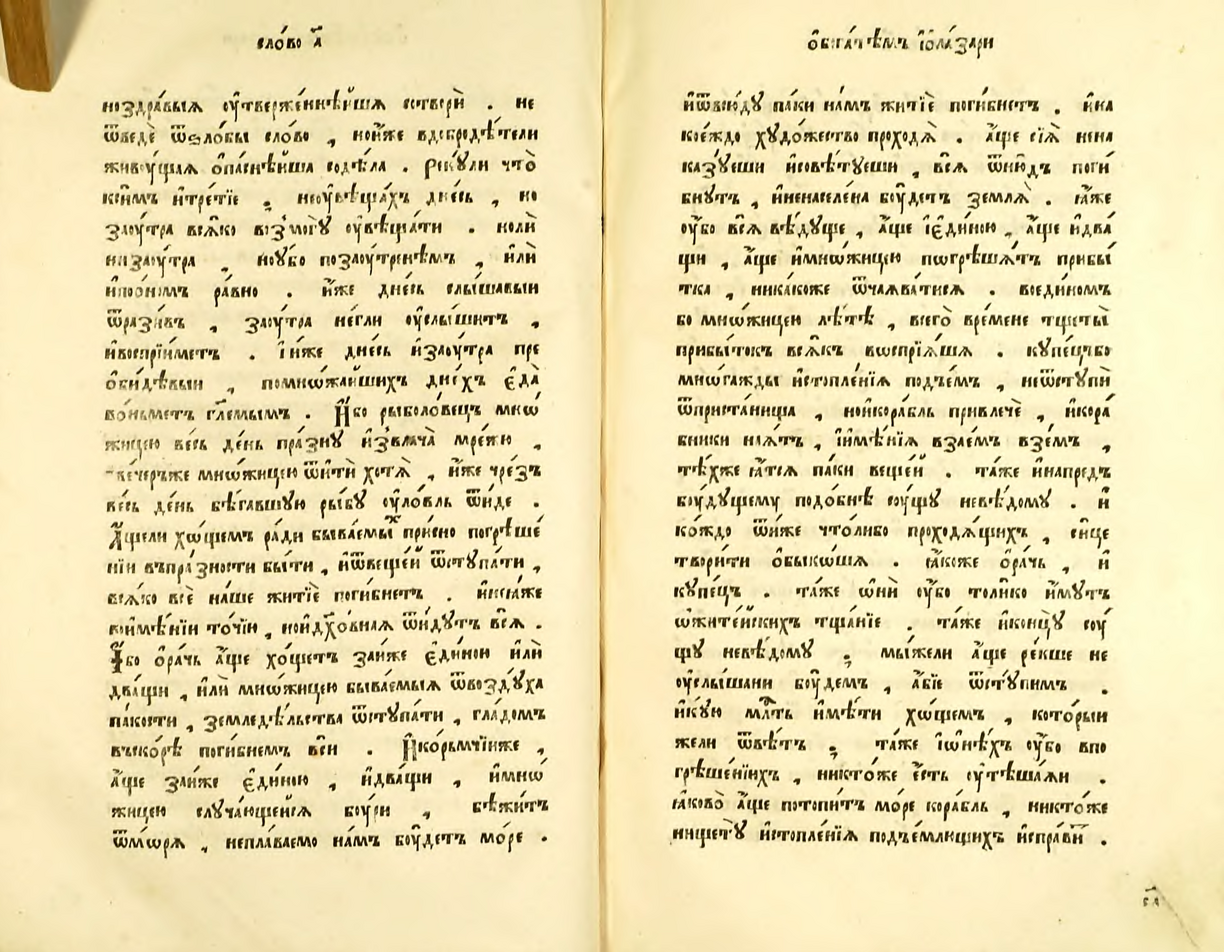 сло́во а҃
ноздра́выѧ оу҆тверже́ннѣйшѧ сотворѝ . не
ѿведѐ ѿѕло́бы сло́во , нои҆́же вдобродѣ́тели
живꙋ́щаѧ ѻ҆па́снѣйша содѣ́ла . реку́ли что̀
кси́мъ и҆тре́тїе , неоу҆вѣща́хъ дне́сь , но
заоу́тра всѧ́ко возмогꙋ̀ оу҆вѣща́ти . ноли̑
низаоу́тра , ноу҆́бо позаоу́тренѣмъ , и҆лѝ
и҆поо́номъ ра́вно . и҆́же дне́сь слы́шавыи
ѿрази́въ , заоу́тра не́гли оу҆слы́шитъ ,
и҆воспрїи́метъ . і҆и҆́же дне́сь и҆заоу́тра пре
ѻ҆би́дѣвыи , помнѡжа́йшихъ дне́хъ є҆да̀
во́ньметъ гл҃емымъ . И҆́бо рыболо́вецъ мнѡ
жицею ве́сь де́нь пра́зну и҆звлача̀ мре́жю ,
ве́черъже мнѡ́жицею ѿитѝ хотѧ̀ , и҆́же чре́зъ
ве́сь де́нь бѣ́гавшую ры́бу оу҆ло́вль ѿи́де .
А҆́щели хѡ́щемъ ра́ди быва́емыⷯ при́сно погрѣше́
нїи въпра́зности бы́ти , и҆ѿвеще́й ѿступа́ти ,
всѧ́ко всѐ на́ше житїѐ поги́бнетъ . и҆несїѧ́же
вои҆мѣ́нїи то́чїи , нои҆дх҃о́внаѧ ѿи́дутъ всѧ̀ .
И҆́бо ѻ҆ра́чь а҆́ще хо́щетъ зане́же є҆ди́ною и҆лѝ
два́щи , и҆лѝ мнѡ́жицею быва́емыѧ ѿвозд́ꙋха
па́кости , земледѣ́льства ѿстꙋпа́ти , гла́домъ
въско́рѣ поги́бнемъ всѝ . И҆ко́рмчїиже ,
а҆́ще зане́же є҆ди́ною , и҆два́щи , и҆мнѡ́
жицею слꙋча́ющейсѧ бо́ури , бѣжи́тъ
ѿмо́рѧ , непла́ваемо на́мъ бо́удетъ мо́ре .
ѻ҆бога́тѣмъ і҆ѻла́зари
и҆ѿвсю́дꙋ па́ки на́мъ житїѐ поги́бнетъ . и҆на
кое́ждо хꙋдо́жество проходѧ̀ . а҆́ще сїѧ̀ нена
ка́зꙋеши и҆совѣ́тꙋеши , всѧ̀ ѿню́дъ поги́
бнутъ , и҆ненаселе́на бо́удетъ землѧ̀ . ꙗ҆́же
оу҆́бо всѧ̀ вѣ́дꙋще , а҆́ще і҆є҆ди́ною , а҆́ще и҆два́
щи , а҆́ще и҆мнѡ́жицею пѡгрѣша́тъ прибы́
тка , ника́коже ѿчаѧва́тисѧ . воеди́номъ
бо мнѡ́жицею лѣ́тѣ , всегѡ̀ времене тщеты̀
прибы́токъ всѧ́къ воспрїѧ́шѧ . кꙋпе́цъбо
мнѡ́гажды и҆стопле́нїѧ подъе́мъ , неѿстꙋпѝ
ѿприста́нища , нои҆кора́бль привлечѐ , и҆кора́
бники наѧ́тъ , і҆и҆мѣ́нїѧ взае́мъ взе́мъ ,
тѣ́хже ꙗ҆́тсѧ па́ки веще́й . та́же и҆напре́дъ
бо́удущемꙋ подо́бнѣ со́ущꙋ невѣ́домꙋ . и҆
ко́ждо ѿи́же что́либо проходѧ́щихъ , си́це
твори́ти ѻ҆быко́ша . ꙗ҆́коже ѻ҆ра́чь , и҆
кꙋпе́цъ . та́же ѡ҆нѝ оу҆́бо толи́ко и҆́мꙋтъ
ѡ҆жите́йскихъ тща́нїе . та́же и҆концꙋ̀ соу́
щꙋ невѣ́домꙋ ; мы́жели а҆́ще ре́кше не
оу҆слы́шани бо́удемъ , а҆́бїе ѿстꙋ́пимъ .
и҆кꙋ́ю мл҃ть и҆мѣ́ти хо́щемъ , кото́рыи
жели ѿвѣ́тъ ; та́же і҆ѡ҆нѣ́хъ оу҆́бо впо
грѣше́нїихъ , никто́же є҆́сть оу҆тѣша́ѧи .
ꙗ҆ково̀ а҆́ще потопи́тъ мо́ре кора́бль , никто́же
нищетꙋ̀ и҆стопле́нїѧ подъе́млющихъ и҆спра́ви .